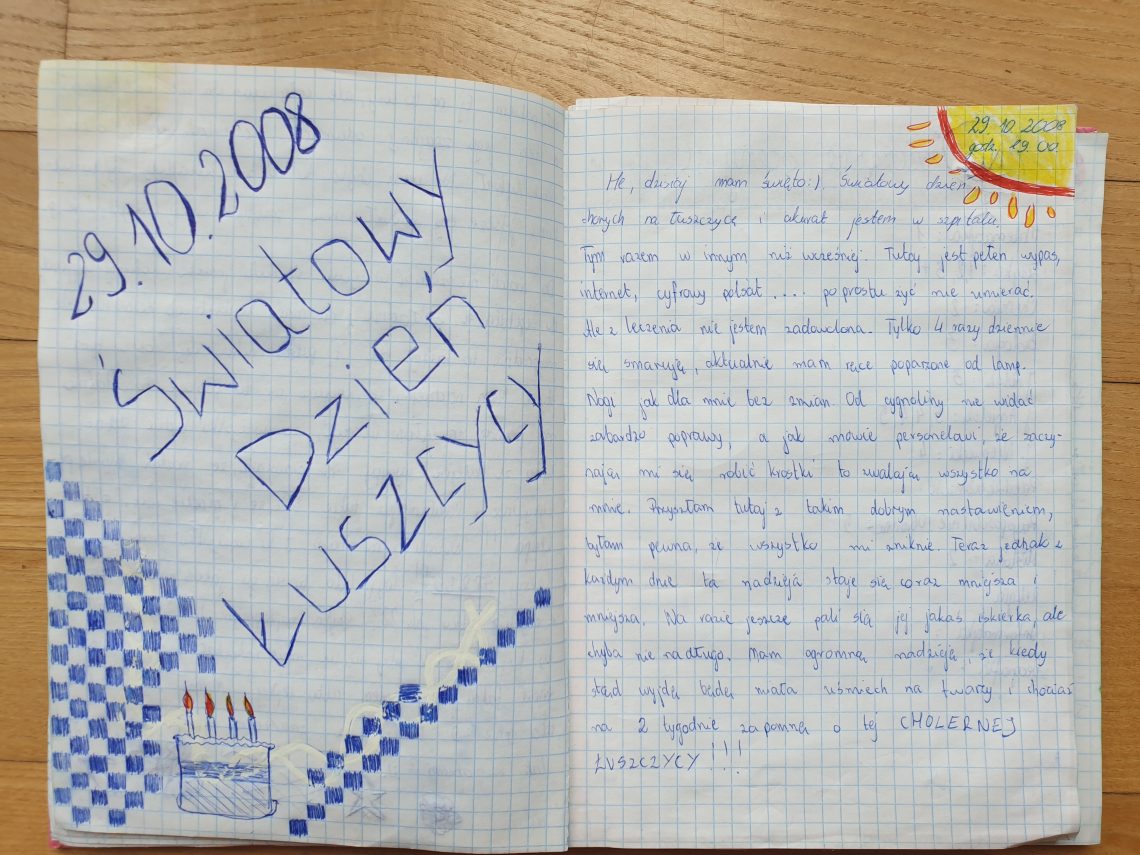 29.10.2008
Światowy
Dzień
Łuszczycy
29.10.2008
godz. 19.00
He, dzisiaj mam święto:). Światowy dzień
chorych na łuszczycę i akurat jestem w szpitalu.
Tym razem w innym niż wcześniej. Tutaj jest pełen wypas,
internet, cyfrowy polsat .... po prostu żyć nie umierać.
Ale z leczenia nie jestem zadowolona. Tylko 4 razy dziennie
się smaruję, aktualnie mam ręce poparzone od lamp.
Nogi jak dla mnie bez zmian. Od cygnoliny nie widać
zabardzo poprawy, a jak mówię personelowi, że zaczy-
nają mi się robić krostki to zwalają wszystko na
mnie. Przyszłam tutaj z takim dobrym nastawieniem,
byłam pewna, że wszystko mi zniknie. Teraz jednak z
każdym dnie ta nadzieja staje się coraz mniejsza i
mniejsza. Na razie jeszcze pali się jej jakaś iskierka, ale
chyba nie na długo. Mam ogromną nadzieję, że kiedy
stąd wyjdę będę miała uśmiech na twarzy i chociaż
na 2 tygodnie zapomnę o tej CHOLERNEJ
ŁUSZCZYCY !!!